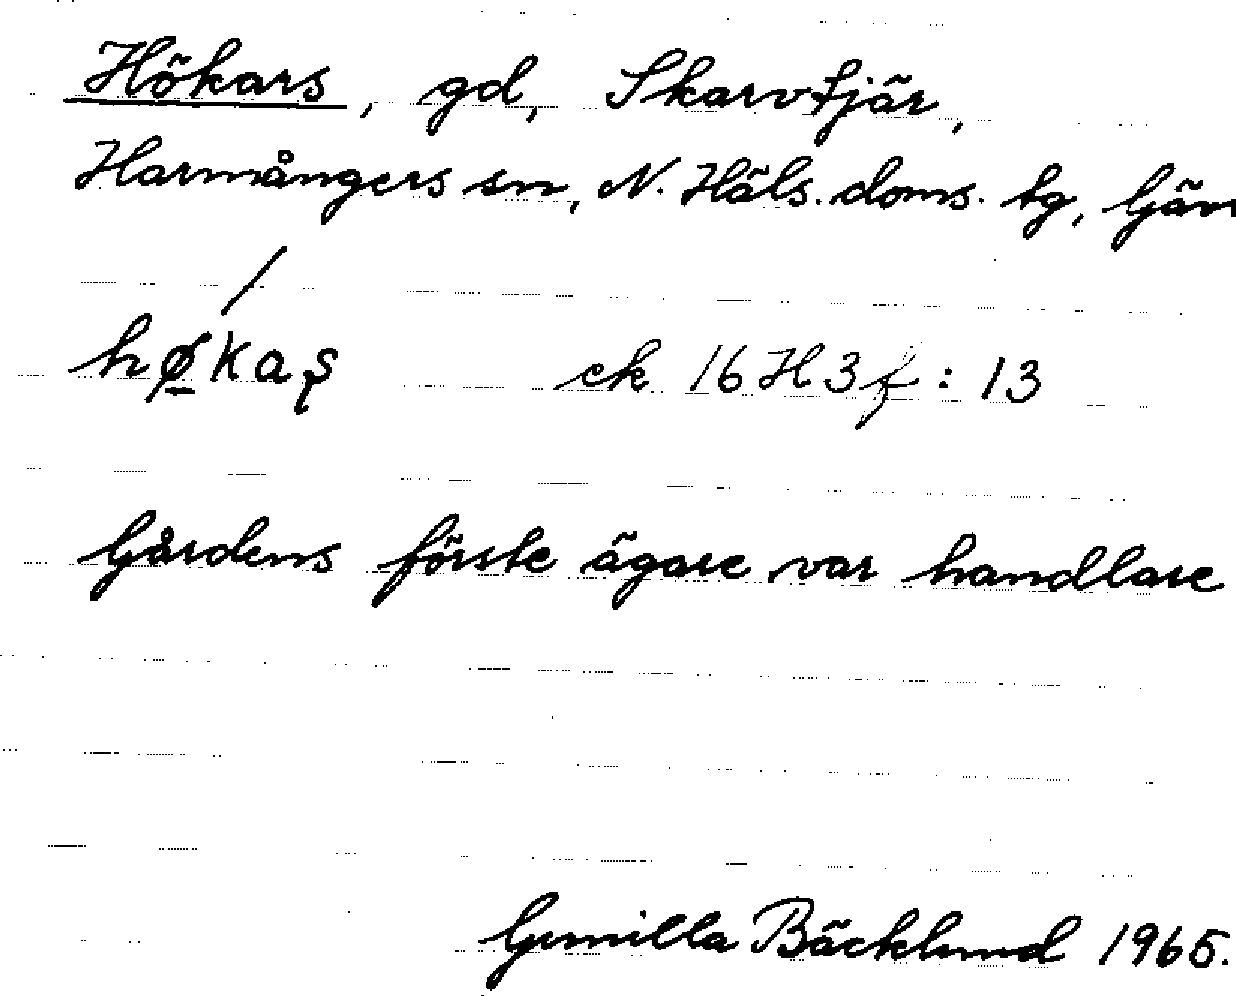 Hökars, gd, Skarvtjär,
Harmångers sn, N. Häls. doms. tg, Gäv
hø̱kaş
ek 16H3f:13
Gårdens förste ägare var handlare
Gunilla Bäcklund 1965.